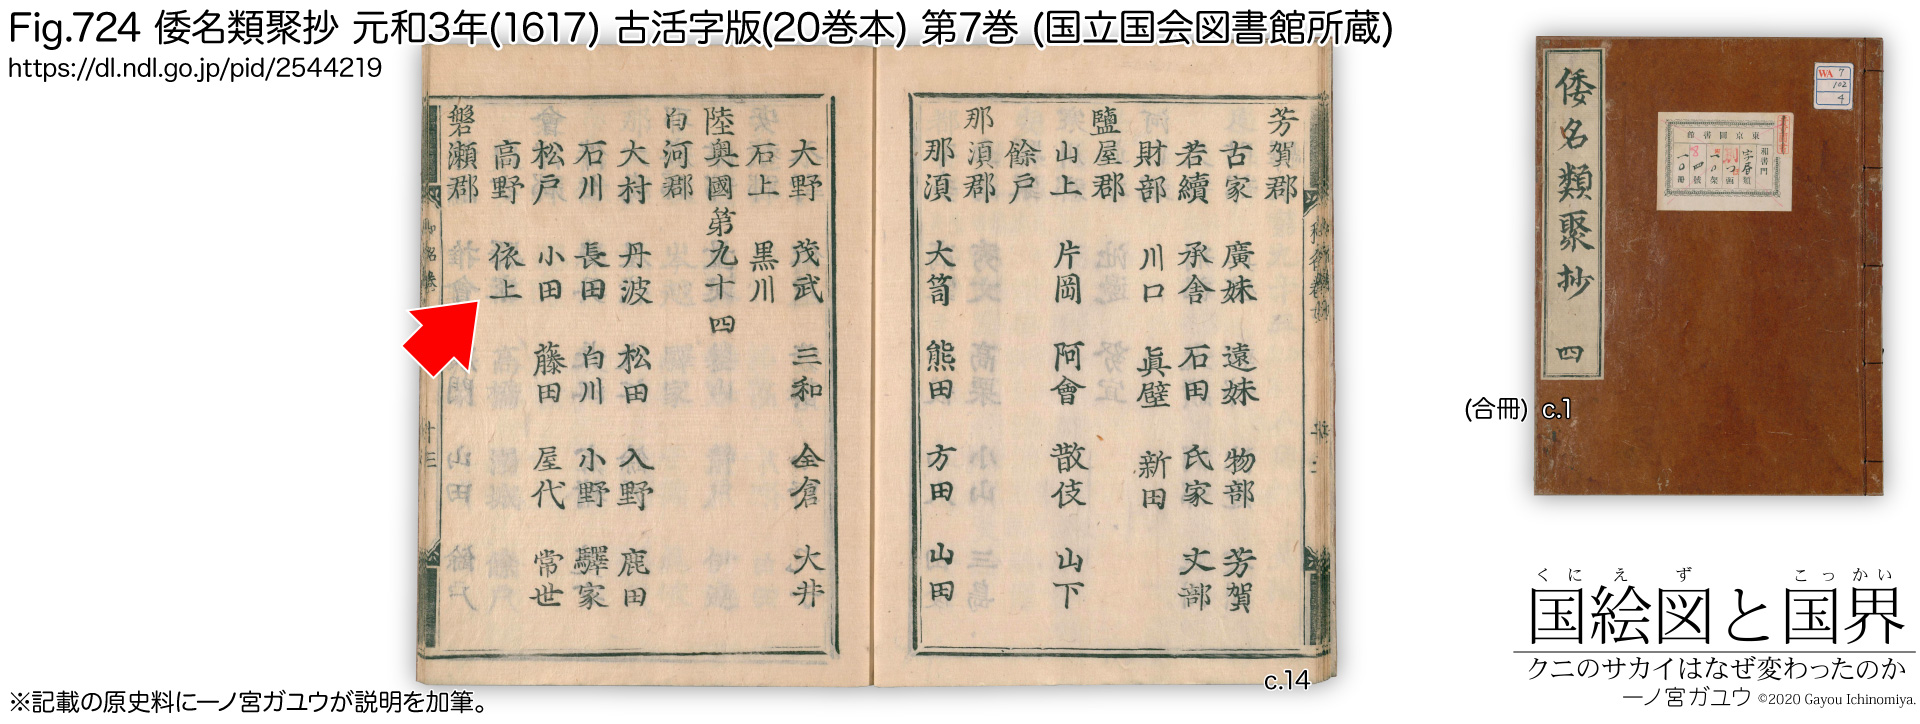 Fig.724 倭名類聚抄 元和3年(1617) 古活字版(20巻本) 第7巻 (国立国会図書館所蔵)
https://dl.ndl.go.jp/pid/2544219
芳賀郡
古家 廣妹 遠妹 物部 芳賀
若續 承舎 石田 氏家 丈部
財部 川口 眞壁 新田
鹽屋郡
山上 片岡 阿會 散伎 山下
餘戸
那須郡
那須 大笥 熊田 方田 山田
大野 茂武 三和 全倉 大井
石上 黒川
陸奥國第九十四
白河郡
大村 丹波 松田 入野 鹿田
石川 長田 白川 小野 驛家
松戸 小田 藤田 屋代 常世
高野 依上
磐瀬郡
十三
c.14
倭名類聚抄 四
WA 7
102
4
東京圖書館
和書門
(合冊) c.1
くにえず こっかい
国絵図と国界
クニのサカイはなぜ変わったのか
一ノ宮ガユウ ©2020 Gayou Ichinomiya.
※記載の原史料に一ノ宮ガユウが説明を加筆。